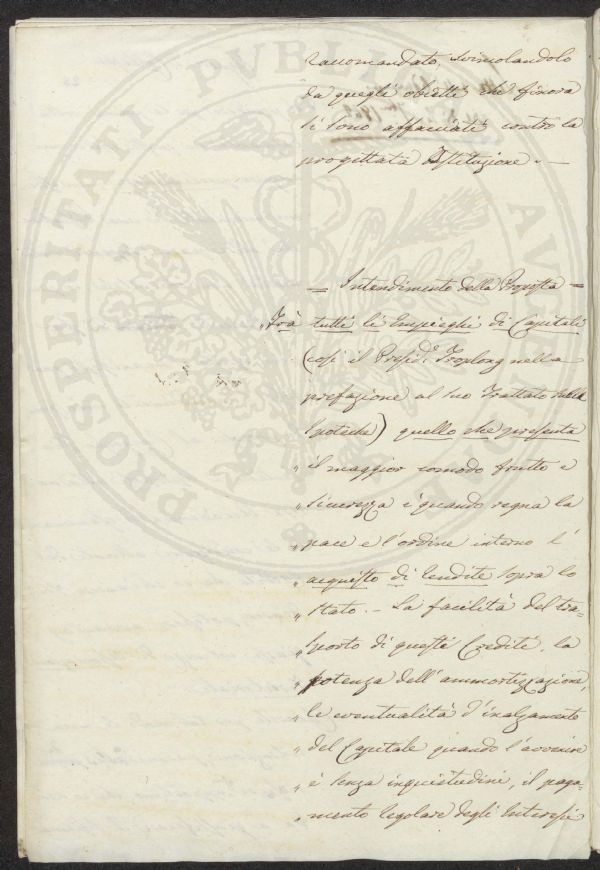 raccomandato, svincolandolo
da quegli obietti che finora
si sono affacciati contro la
progettata Istituzione. —
= Intendimento della Proposta =
„Trà tutti li Impieghi di Capitali
(così il Presid.e Troplong nella
prefazione al suo Trattato sulle
Ipoteche) quello che presenta
„ il maggior comodo frutto e
„ sicurezza è quando regna la
„ pace e l'ordine interno l'
„ acquisto di rendite sopra lo
„ Stato. — La facilità del tra-
„ sporto di questi Crediti, la
„ potenza dell'ammortizzazione,
„ le eventualità d'inalzamento
„ del Capitale quando l'avvenire
„ è senza inquietudini, il paga-
„ mento regolare degli Interessi
PROSPERITATI PUBLICAE AUGENDAE